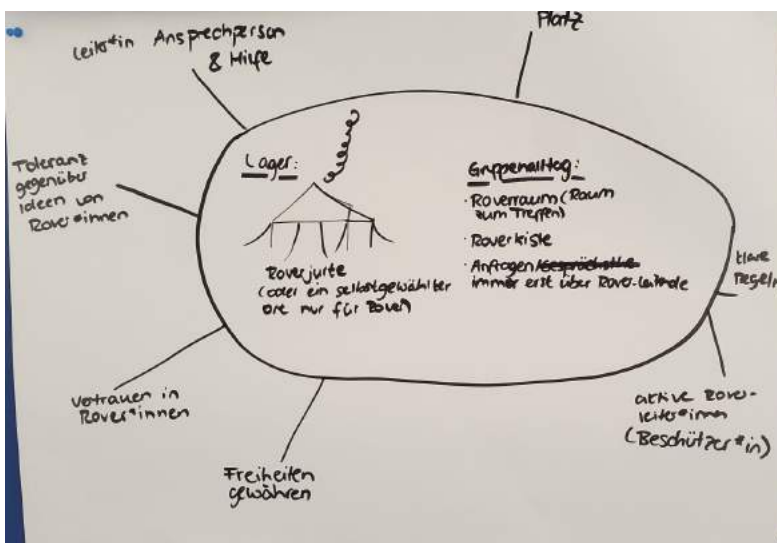 Leiter*in Ansprechperson
& Hilfe
Platz
Toleranz
gegenüber
Ideen von
Rover*innen
Lager:
Roverjurte
(oder ein selbstgewählter
Ort nur für Rover)
Gruppenalltag:
· Roverraum (Raum
zum Treffen)
· Roverkiste
· Anfragen
immer erst über Rover-Leitende
klare
Regeln
Vertrauen in
Rover*innen
aktive Rover-
leiter*innen
(Beschützer*in)
Freiheiten
gewähren